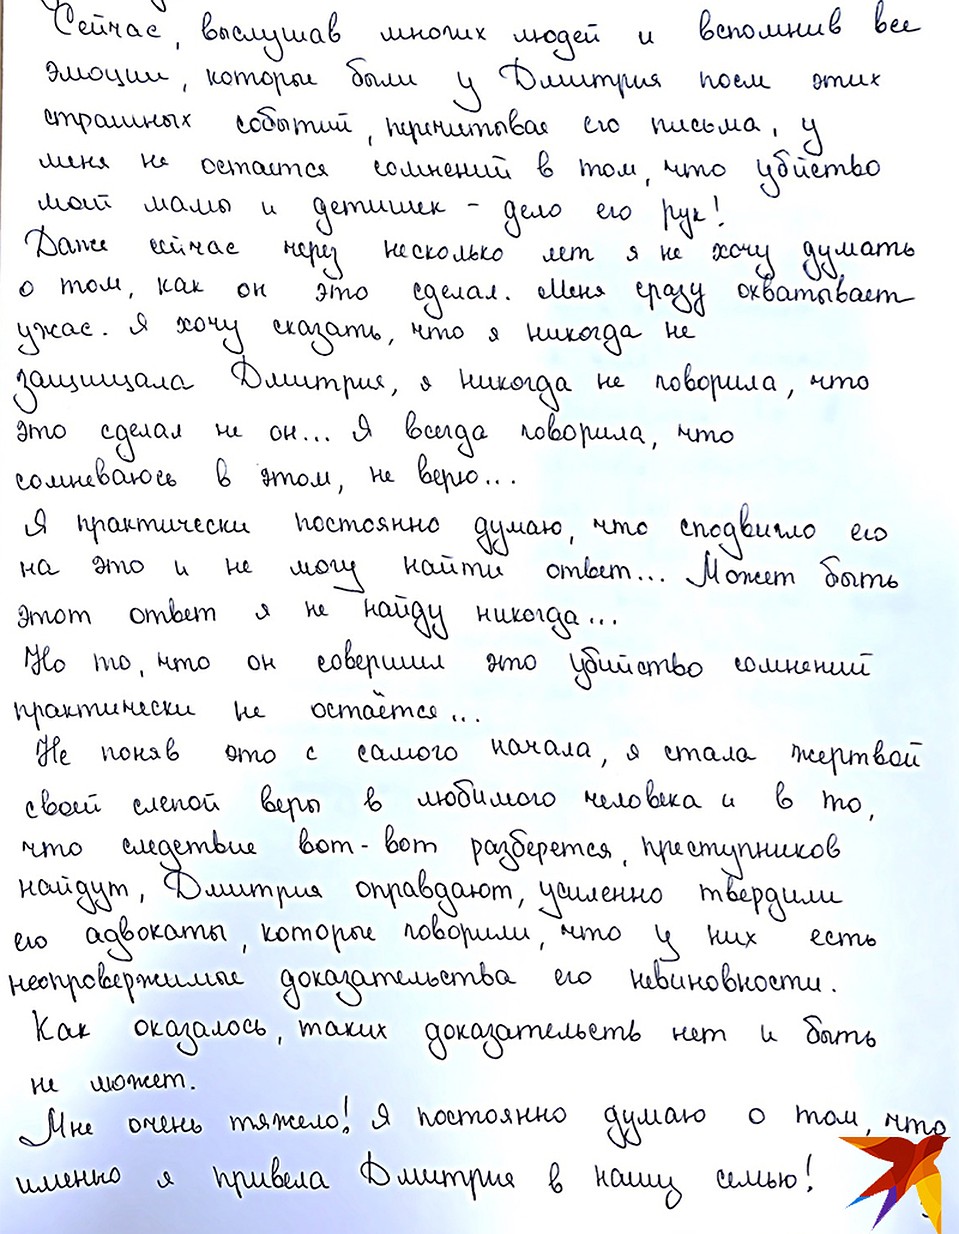 Сейчас, выслушав многих людей и вспомнив все
эмоции, которые были у Дмитрия после этих
страшных событий, перечитывая его письма, у
меня не остается сомнений в том, что убийство
моей мамы и детишек - дело его рук!
Даже сейчас через несколько лет я не хочу думать
о том, как он это сделал. Меня сразу охватывает
ужас. Я хочу сказать, что я никогда не
защищала Дмитрия, я никогда не говорила, что
это сделал не он... Я всегда говорила, что
сомневаюсь в этом, не верю...
Я практически постоянно думаю, что сподвигло его
на это и не могу найти ответ... Может быть
этот ответ я не найду никогда...
Но то, что он совершил это убийство сомнений
практически не остаётся...
Не поняв это с самого начала, я стала жертвой
своей слепой веры в любимого человека и в то,
что следствие вот-вот разберется, преступников
найдут, Дмитрия оправдают, усиленно твердили
его адвокаты, которые говорили, что у них есть
неопровержимые доказательства его невиновности.
Как оказалось, таких доказательств нет и быть
не может.
Мне очень тяжело! Я постоянно думаю о том, что
именно я привела Дмитрия в нашу семью!